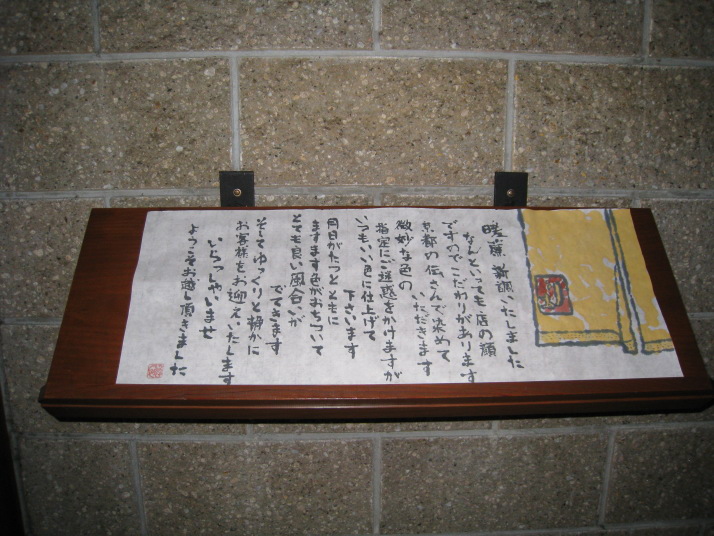 暖簾 新調いたしました
なんといっても店の顔
ですのでこだわりがあります
京都の伝さんで染めて
いただきます
微妙な色の
指定にご迷惑をかけますが
いつもいい色に仕上げて
下さいます
月日がたつとともに
ますます色がおちついて
とても良い風合いが
でてきます
そしてゆっくりと静かに
お客様をお迎えいたします
いらっしゃいませ
ようこそお越し頂きました